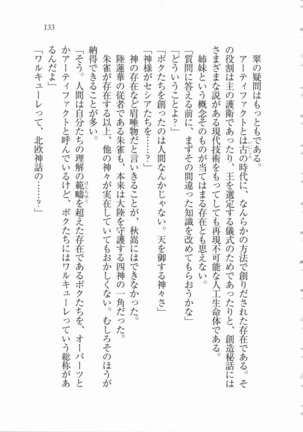 133
翠の疑問はもっともである。
アーティファクトとは古の時代に、なんらかの方法で創りだされた存在である。そ
の役割は主の護衛であったり、王を選定する儀式のためであったりと、創造秘話には
さまざまな説がある現代技術をもってしても再現不可能な人工生命体である。
姉妹という概念そのものが当てはまる存在とも思えない。
「質問に答える前に、まずその間違った知識を改めてもらおうかな」
「どういうことよ?」
「ボクたちを創ったのは人間なんかじゃない。天を御する神々さ」
「神様がセシアたちを……?」
神の存在など眉唾物だと言いきることが、秋嵩にはできなかった。
陸蓮華の従者である朱雀も、本来は大陸を守護する四神の一角だった。
朱雀が存在する以上、他の神々が実在していてもおかしくない。むしろそのほうが
納得できることが多い。
「そう。人間は自分たちの理解の範疇を超えた存在であるボクたちを、オーパーツと
かアーティファクトと呼んでいるけど、ボクたちにはワルキューレっていう総称があ
るんだよ」
「ワルキューレって、北欧神話の……?」